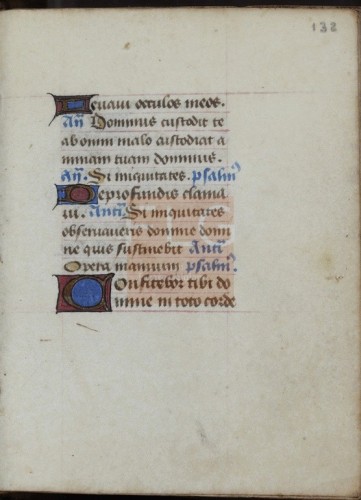 132
Leuaui occulos meos.
Añ Dominus custodit te
ab omni malo custodiat a
nimam tuam dominus.
Añ. Si iniquitates. psalm̃
De profundis clama
ui. Antiᵃ Si iniquitates
obseruaueris domine domi
ne quis sustinebit Antiᵃ
Opera manuum psalm̃.
Confitebor tibi do
mine in toto corde